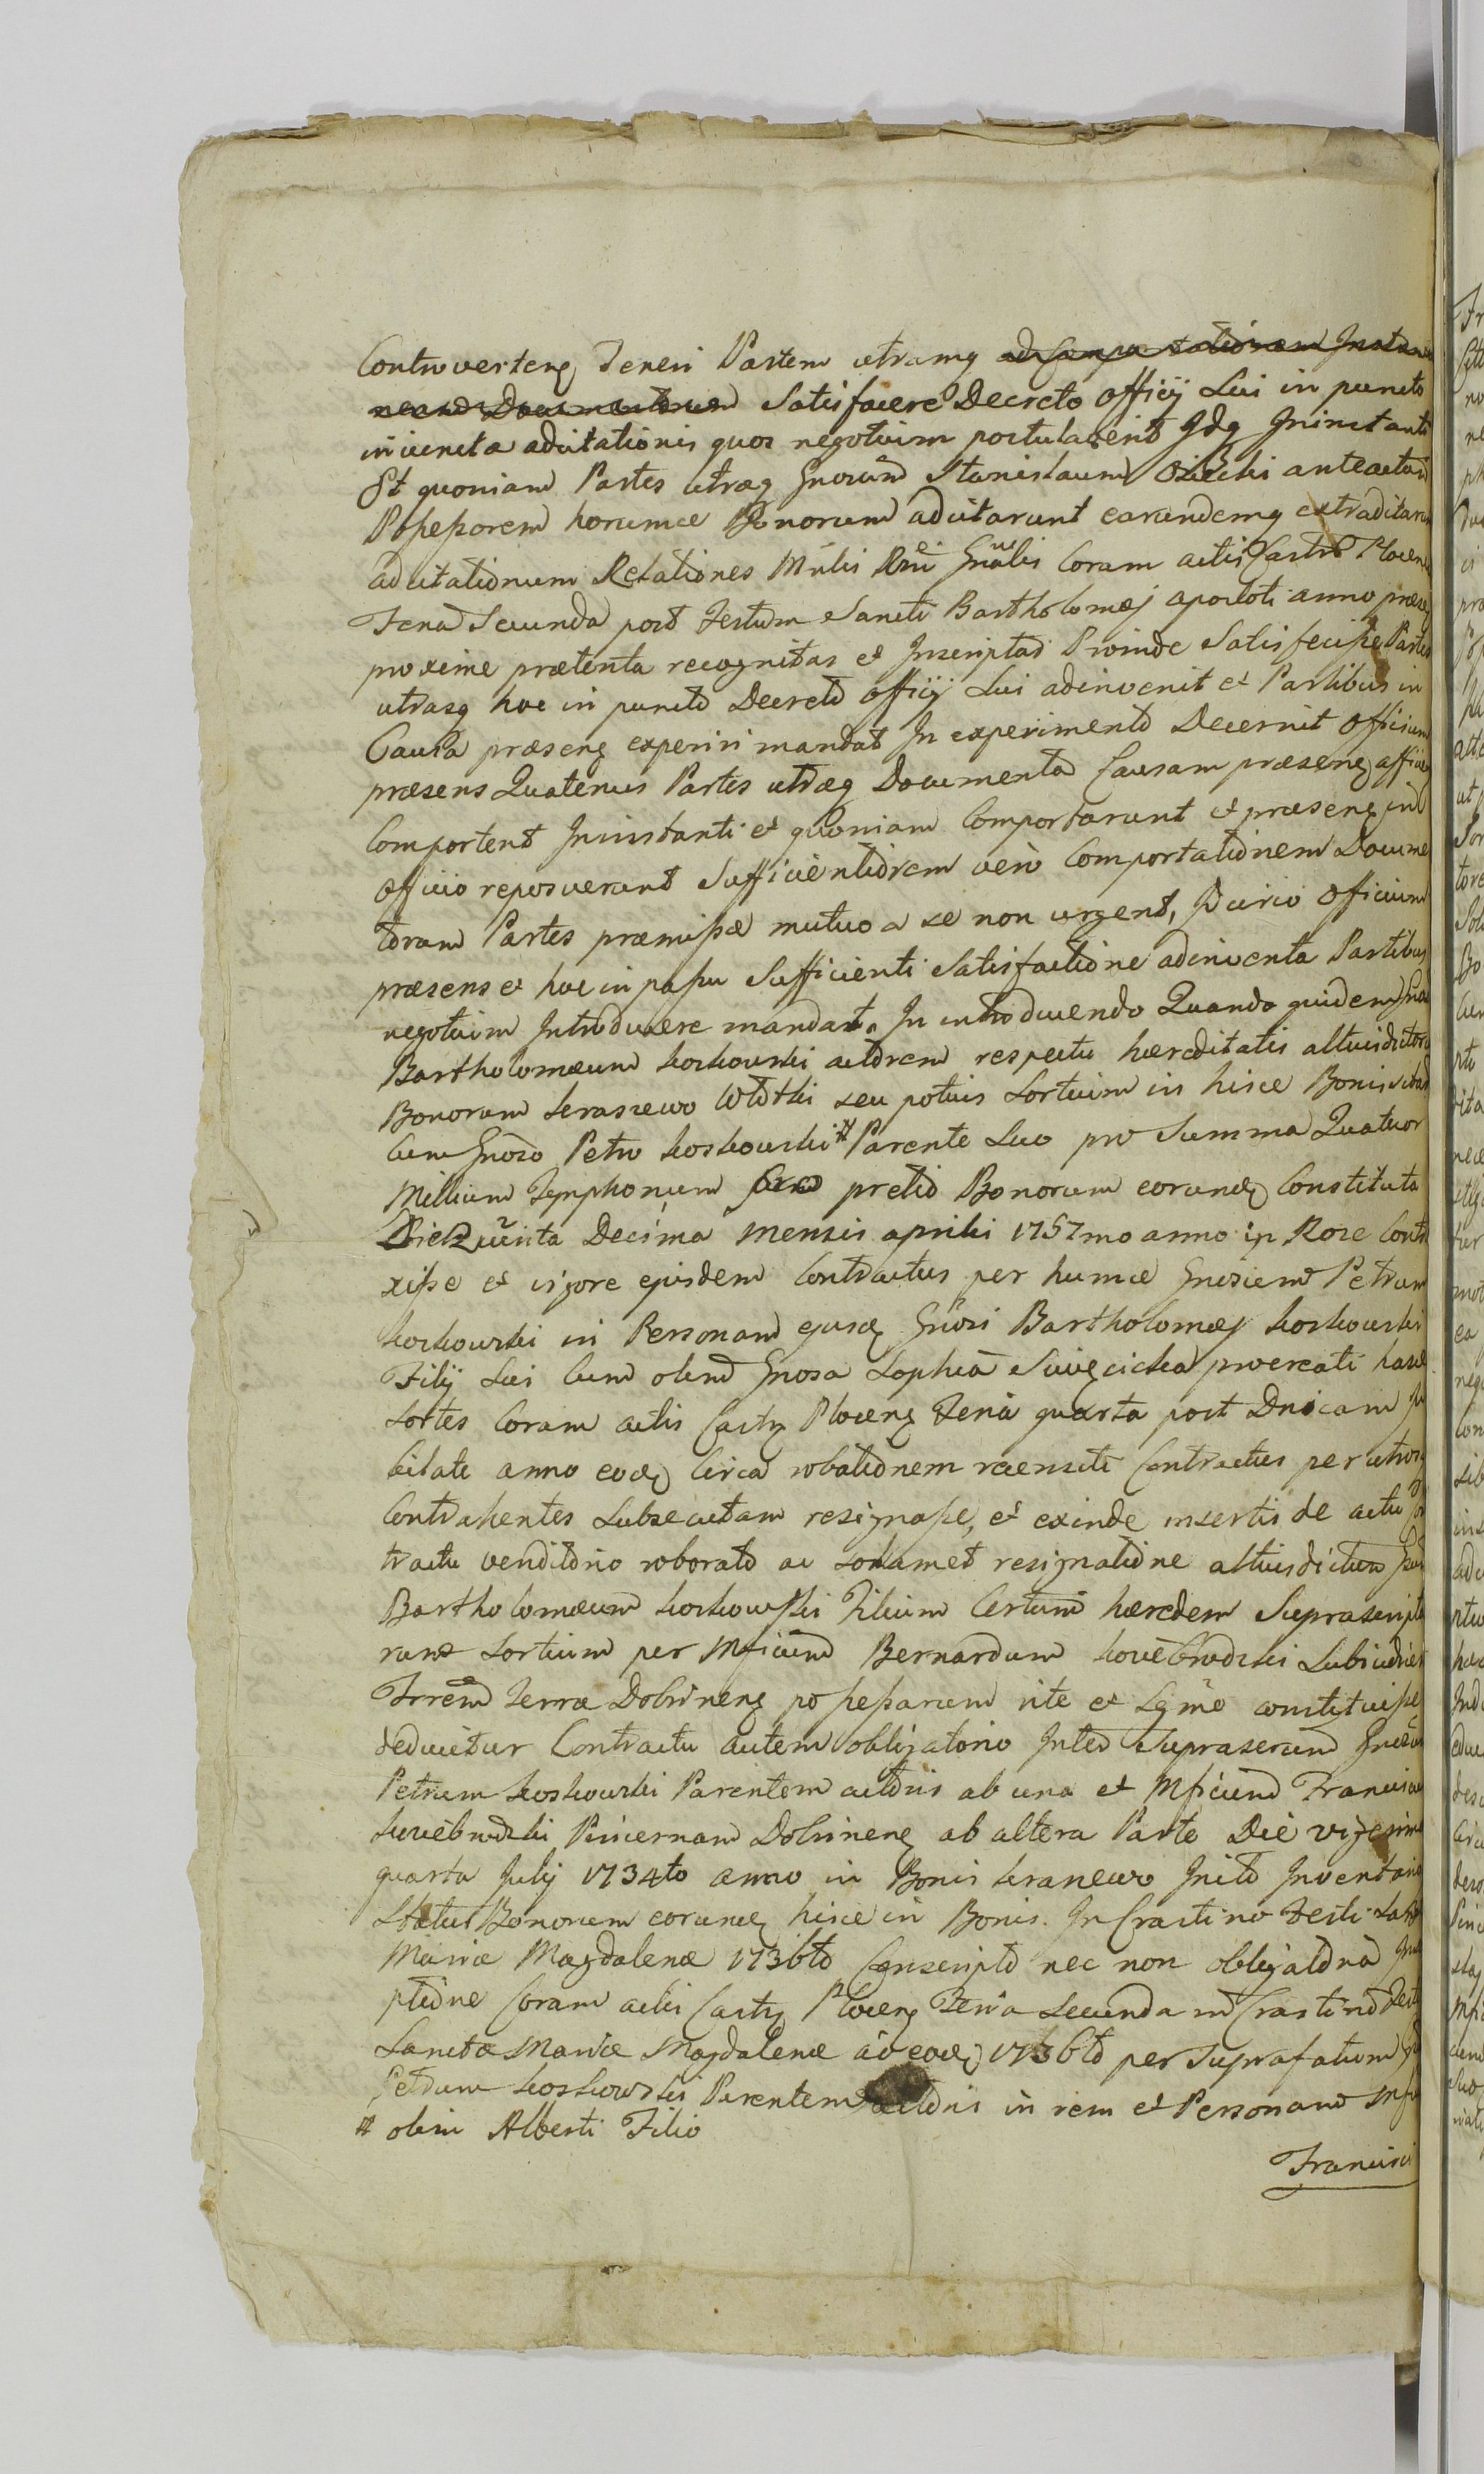 Controverteng teneri Partem utramq ad Comportationem Instru
mentorum Documentorum Satisfacere Decreto Officij Sui in puncto
iniuncta adcitationis quos negotium postulaverit Idq Ininstanti
Et quoniam Partes utræq Gnosum Stanislaum Osiecki anteactum
Possessorem horumce Bonorum adcitarunt earundemq extraditarum
adcitationum Relationes Mnlis Rni Gnalis Coram actis Castri Ploceng
Feria Secunda post Festum Sancti Bartholomæj apostoli anno præsę
proxime prætenta recognitas et Inscriptas Proinde Satisfecisse Partes
utrasq hoc in puncto Decreto Officij Sui adinvenit et Partibus in
Causa præseng experiri mandat In experimento Decernit Officium
præsens Quatenus Partes utræq Documenta Causam præseng affici
Comportent Ininstanti et quoniam Comportarunt et præseng in
Officio reposuerunt Sufficientiorem vero Comportationem Docume
torum Partes præmissæ mutuo a se non urgent, Idcirco Officium
præsens et hoc in passu Sufficienti Satisfactione adinventa Partibus
negotium Introducere mandat. In introducendo Quando quidem Gno
Bartholomæum Koskowski actorem respectu hæreditatis altusdictor
Bonorum Seraszewo Wlotki seu potius Sortium in hisce Bonis
Cum Gnoso Petro Koskowski # Parente Suo pro Summa Quatuor
Millium Tymphonum pretio Bonorum eorundę Constituta
Die Quinta Decima Mensis aprilis 1757mo anno in Roze Contra
xisse et vigore ejusdem Contractus per huncce Gnosum Petrum
Koskowski in Personam ejusdę Gnosi Bartholomæj Koskowski
Filij Sui Cum olim Gnosa Sophia Swięcicka procreati hasce
Sortes Coram actis Castrę Ploceng Feria quarta post Dnicam Ju
bilate anno eodę Circa robationem recensiti Contractus per utrosq
Contrahentes Subsecutam resignasse, et exinde insertis de actu Con
tractu venditorio roborato ac solamet resignatione altiusdictum Gno
Bartholomæum Koskowski Filium Certum hæredem Suprascripta
rum Sortium per Mficum Bernardum Kowebrodzki Subiudicem
Terræ Dobrineng possessarum rite et Lgme constituisse
deducitur Contractu autem obligatorio Inter Suprascrum Gnosum
Petrum Koskowski Parentem actoris ab una et Mficum Franciscum
Kowebrodzki Pincernam Dobrineng ab altera Parte Die vigesima
quarta Julij 1734to anno in Bonis Seraneuro Inito Inventario
Status Bonorum eorundę hisce in Bonis In Crastino Festi Sanctæ
Mariæ Magdalenæ 1736to Conscripto nec non obligatoria Inscri
ptione Coram actis Castrę Ploceng Feria Secunda in Crastino Festi
Sanctæ Mariæ Magdalenæ ao eodę 1736to per Suprafatum Gno
Petrum Koskowski Parentem actoris in rem et Personam Mfci
# olim Alberti Filio
Francisci